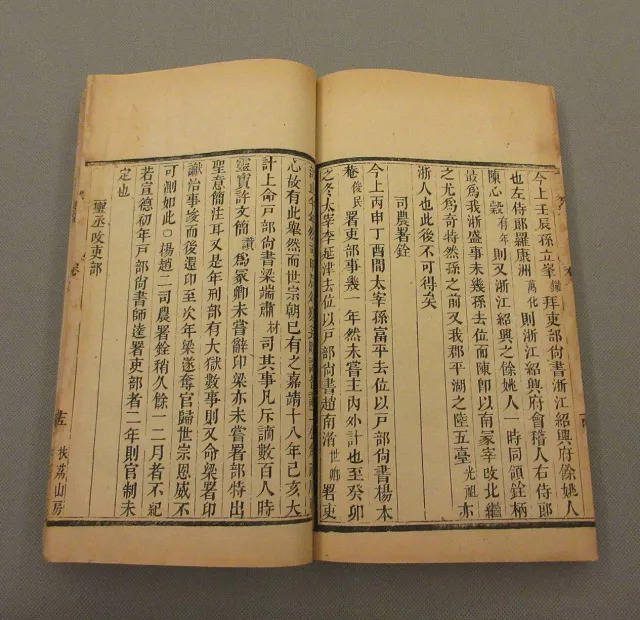 今上壬辰孫立峯鑨拜吏部尚書浙江紹興府餘姚人
也左侍郎羅康洲萬化則浙江紹興府會稽人右侍郎
陳心穀有年則又浙江紹興之餘姚人一時同領銓柄
最爲我浙盛事未幾孫去位而陳卽以南冢宰改北繼
之尤爲奇特然孫之前又我郡平湖之陸五臺光祖亦
浙人也此後不可得矣
司農署銓
今上丙申丁酉間太宰孫富平去位以戶部尚書楊本
菴俊民署吏部事幾一年然未嘗主內外計也至癸卯
之冬太宰李延津去位以戶部尚書趙南渚世卿署吏
心故有此舉然而世宗朝已有之嘉靖十八年己亥大
計上命戶部尚書梁端肅材司其事凡斥謫數百人時
靈寶許文簡讚爲冢卿未嘗辭印梁亦未嘗署部特出
聖意簡注耳又是年刑部有大獄數事則又命梁署印
讞治事竣而後還印至次年梁遂奪官歸世宗恩威不
可測如此○楊趙二司農署銓稍久餘一二月者不紀
若宣德初年戶部尚書師逵署吏部者二年則官制未
定也
璽丞改吏部
扶荔山房